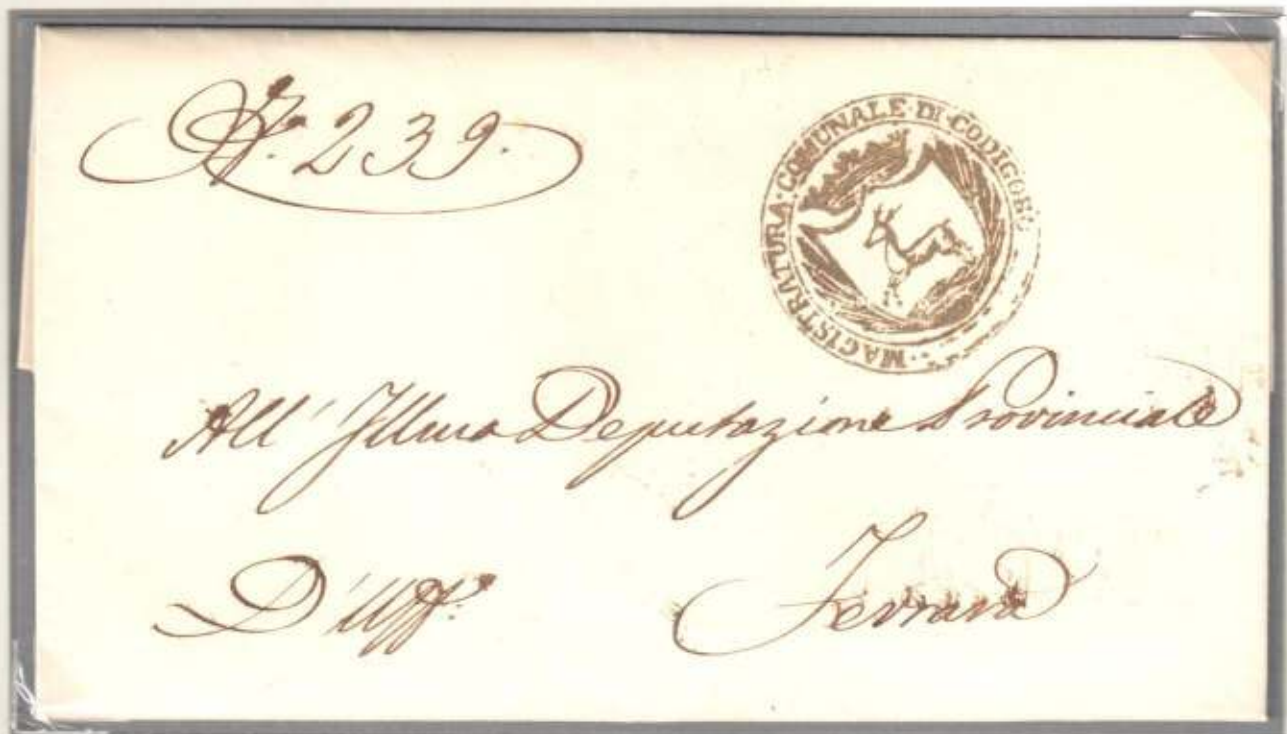 N. 239.
MAGISTRATURA COMUNALE DI CODIGORO
All' Illma Deputazione Provinciale
D'Uff.º
Ferrara